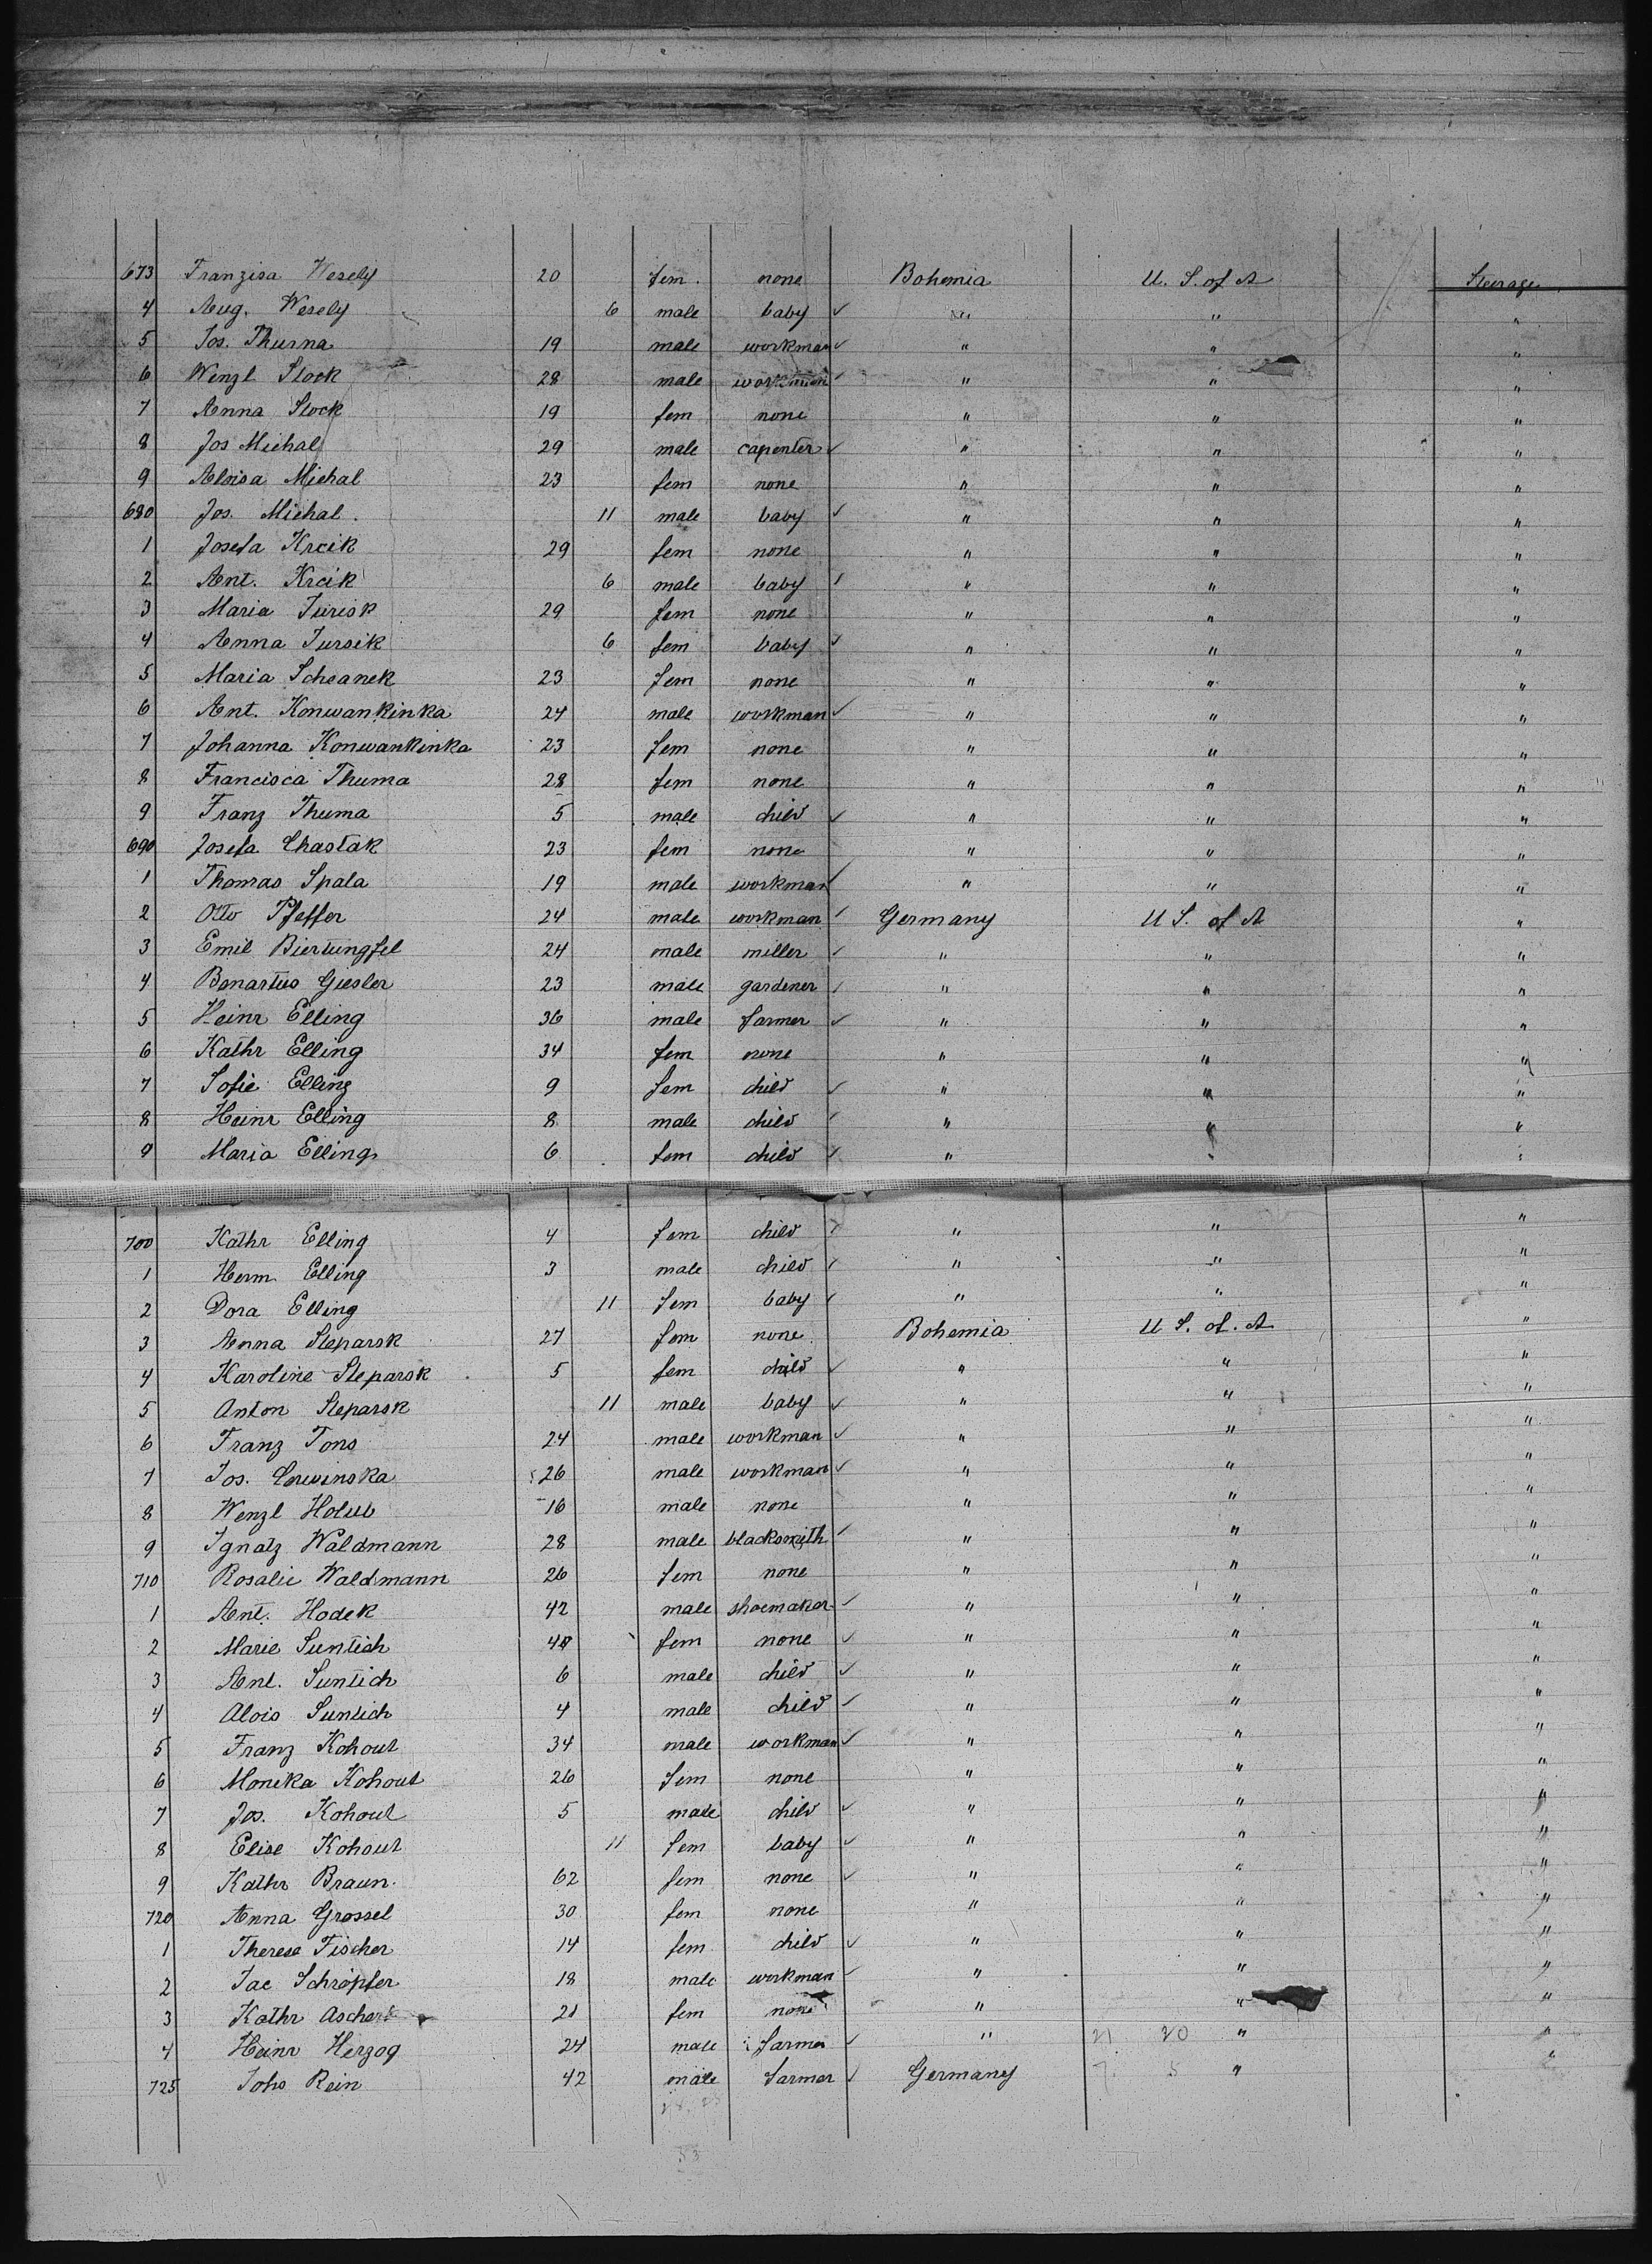 673 Franzisa Wesely 20 fem. none Bohemia U. S. of A Steerage
4 Aug. Wesely 6 male baby ✓ " " "
5 Jos. Thurna 19 male workman ✓ " " "
6 Wenzl Stock 28 male workman ✓ " " "
7 Anna Stock 19 fem none " " "
8 Jos Michal 29 male capenter ✓ " " "
9 Aloisa Michal 23 fem none " " "
680 Jos. Michal. 11 male baby ✓ " " "
1 Josefa Krcik 29 fem none " " "
2 Ant. Krcik 6 male baby ✓ " " "
3 Maria Jurisk 29 fem none " " "
4 Anna Jursik 6 fem baby ✓ " " "
5 Maria Scheanek 23 fem none " " "
6 Ant. Konwankinka 24 male workman ✓ " " "
7 Johanna Konwankinka 23 fem none " " "
8 Francisca Thuma 28 fem none " " "
9 Franz Thuma 5 male child ✓ " " "
690 Josefa Chastak 23 fem none " " "
1 Thomas Spala 19 male workman ✓ " " "
2 Otto Pfeffer 24 male workman ✓ Germany U S. of A "
3 Emil Bierlungfel 24 male miller ✓ " " "
4 Bonartus Giesler 23 male gardener ✓ " " "
5 Heinr Elling 36 male farmer ✓ " " "
6 Kathr Elling 34 fem none " " "
7 Sofie Elling 9 fem child ✓ " " "
8 Heinr Elling 8 male child ✓ " " "
9 Maria Elling 6 fem child ✓ " " "
700 Kathr Elling 4 fem child ✓ " " "
1 Herm Elling 3 male child ✓ " " "
2 Dora Elling 11 fem baby ✓ " " "
3 Anna Steparsk 27 fem none Bohemia U S. of. A "
4 Karoline Steparsk 5 fem child ✓ " " "
5 Anton Steparsk 11 male baby ✓ " " "
6 Franz Tons 24 male workman ✓ " " "
7 Jos. Cerwinska 26 male workman ✓ " " "
8 Wenzl Holub 16 male none " " "
9 Ignatz Waldmann 28 male blacksmith ✓ " " "
710 Rosalie Waldmann 26 fem none " " "
1 Ant. Hodek 42 male shoemaker ✓ " " "
2 Marie Suntich 40 fem none ✓ " " "
3 Ant. Suntich 6 male child ✓ " " "
4 Alois Suntich 4 male child ✓ " " "
5 Franz Kohout 34 male workman ✓ " " "
6 Monika Kohout 26 fem none " " "
7 Jos. Kohout 5 male child ✓ " " "
8 Elise Kohout 11 fem baby ✓ " " "
9 Kathr Braun. 62 fem none ✓ " " "
720 Anna Grossel 30 fem none " " "
1 Therese Fischer 14 fem child ✓ " " "
2 Jac Schröpfer 18 male workman ✓ " " "
3 Kathr Ascherl 21 fem none " " "
4 Heinr Herzog 24 male farmer ✓ " 21 20 " "
725 Johs Rein 42 male farmer ✓ Germany 7. 5 " "
53